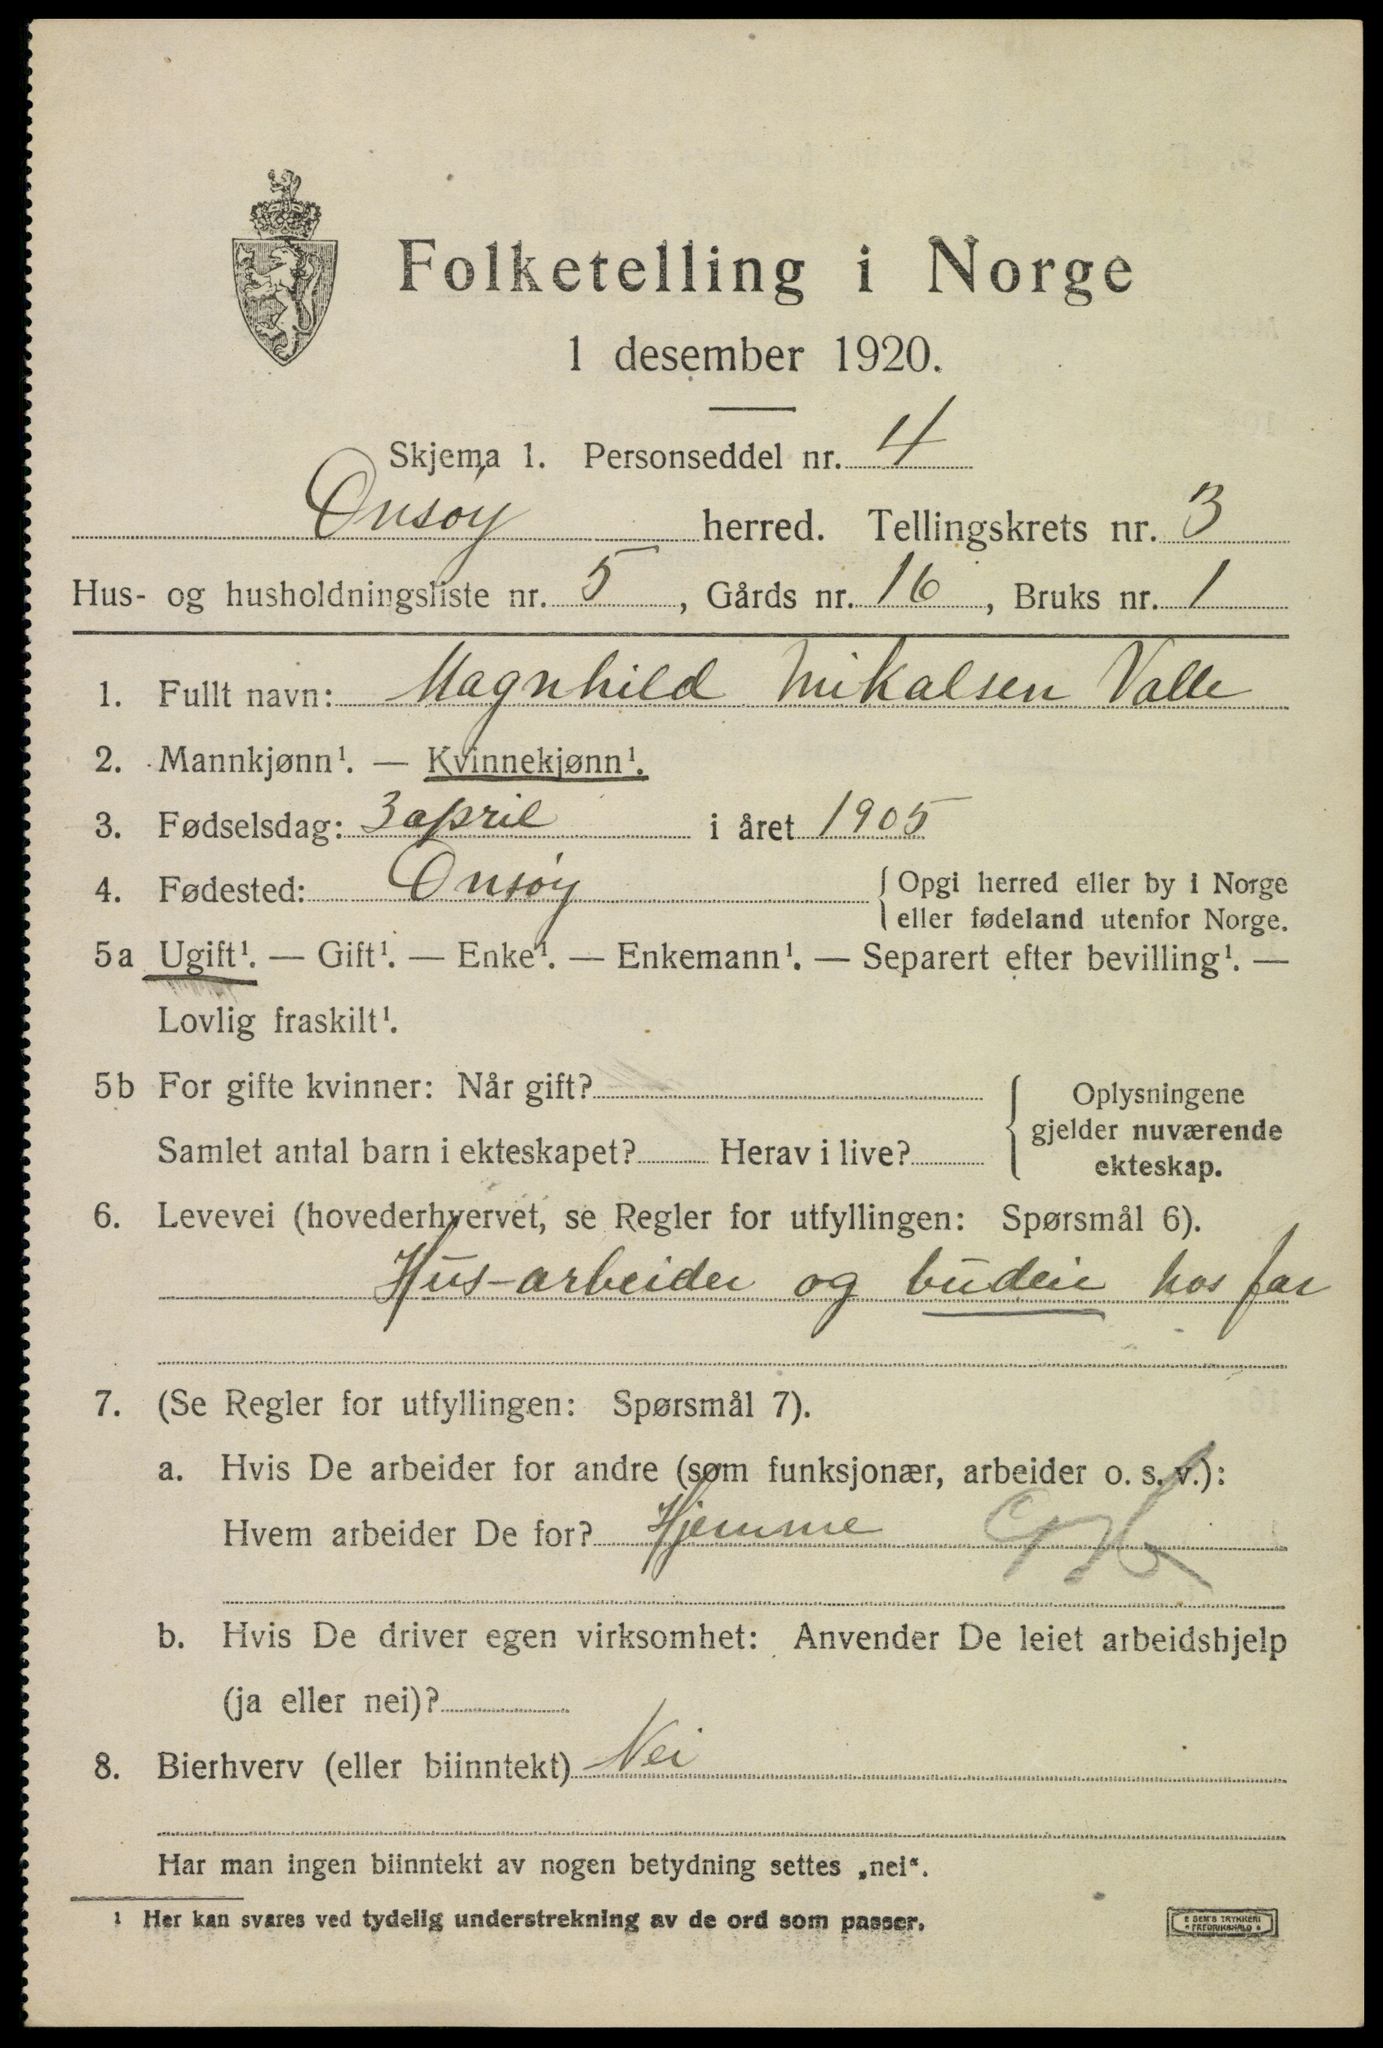 Folketelling i Norge
1 desember 1920.
Skjema 1. Personseddel nr. 4
Onsøy herred. Tellingskrets nr. 3
Hus- og husholdningsliste nr. 5, Gårds nr. 16, Bruks nr. 1
1. Fullt navn: Magnhild Mikalsen Valle
2. Mannkjønn¹. — Kvinnekjønn¹.
3. Fødselsdag: 3 april i året 1905
4. Fødested: Onsøy { Opgi herred eller by i Norge
eller fødeland utenfor Norge.
5a Ugift¹. — Gift¹. — Enke¹. — Enkemann¹. — Separert efter bevilling¹. —
Lovlig fraskilt¹.
5b For gifte kvinner: Når gift?
Samlet antal barn i ekteskapet? Herav i live?
{ Oplysningene
gjelder nuværende
ekteskap.
6. Levevei (hovederhvervet, se Regler for utfyllingen: Spørsmål 6).
Hus-arbeider og budeie hos far
7. (Se Regler for utfyllingen: Spørsmål 7).
a. Hvis De arbeider for andre (som funksjonær, arbeider o. s. v.):
Hvem arbeider De for? Hjemme
b. Hvis De driver egen virksomhet: Anvender De leiet arbeidshjelp
(ja eller nei)?
8. Bierhverv (eller biinntekt) Nei
Har man ingen biinntekt av nogen betydning settes „nei“.
¹ Her kan svares ved tydelig understrekning av de ord som passer.
E SEM'S TRYKKERI
FREDRIKSHALD